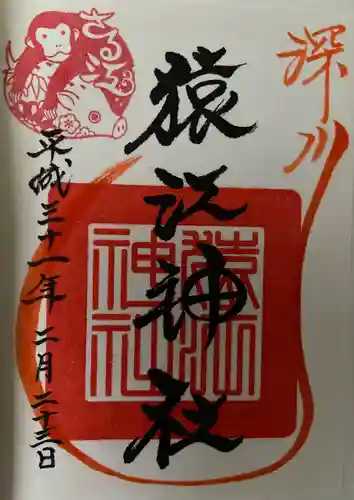 深川
猿江神社
猿江神社
さるえ
平成三十一年二月二十三日